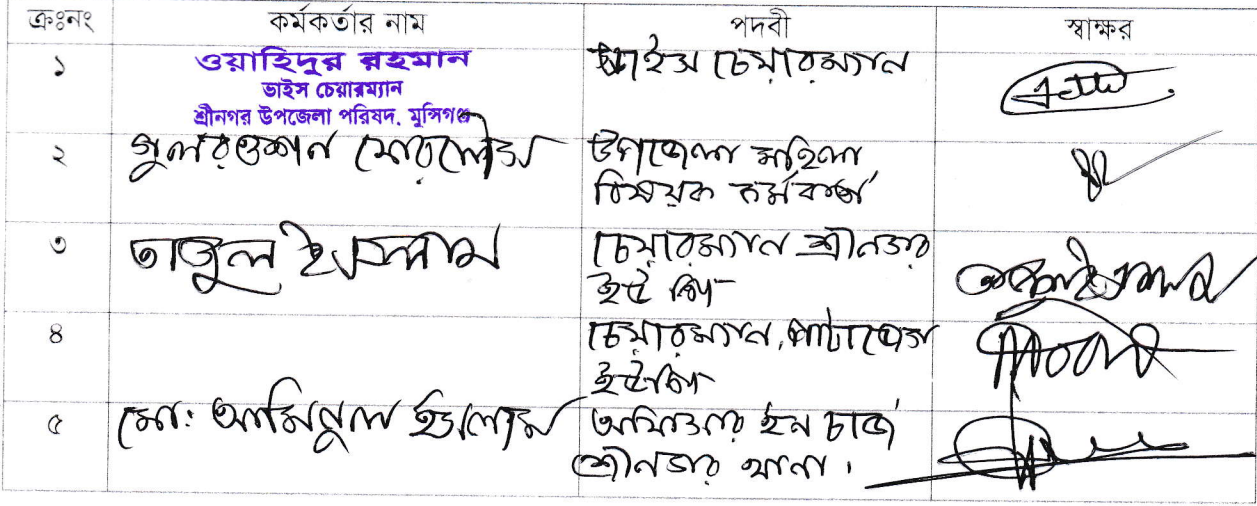 ক্রঃনং কর্মকর্তার নাম পদবী স্বাক্ষর
১ ওয়াহিদুর রহমান ভাইস চেয়ারম্যান
ভাইস চেয়ারম্যান
শ্রীনগর উপজেলা পরিষদ, মুন্সিগঞ্জ
২ গুলরওশন ফেরদৌস উপজেলা মহিলা
বিষয়ক কর্মকর্তা
৩ তাজুল ইসলাম চেয়ারম্যান শ্রীনগর
ইউ পি
৪ চেয়ারম্যান, পাটাভোগ
ইউপি
৫ মো: আমিনুল ইসলাম অফিসার ইন চার্জ
শ্রীনগর থানা।